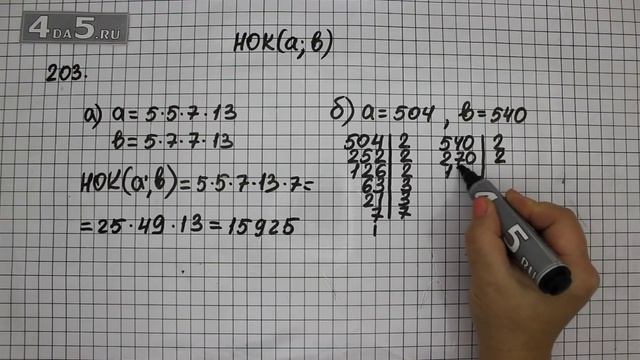 4DA5.RU
НОК(а; в)
203.
а) а = 5·5·7·13
в = 5·7·7·13
НОК(а; в) = 5·5·7·13·7 =
= 25·49·13 = 15925
б) а = 504, в = 540
504 | 2
252 | 2
126 | 2
63 | 3
21 | 3
7 | 7
1
540 | 2
270 | 2
1
4DA5.RU